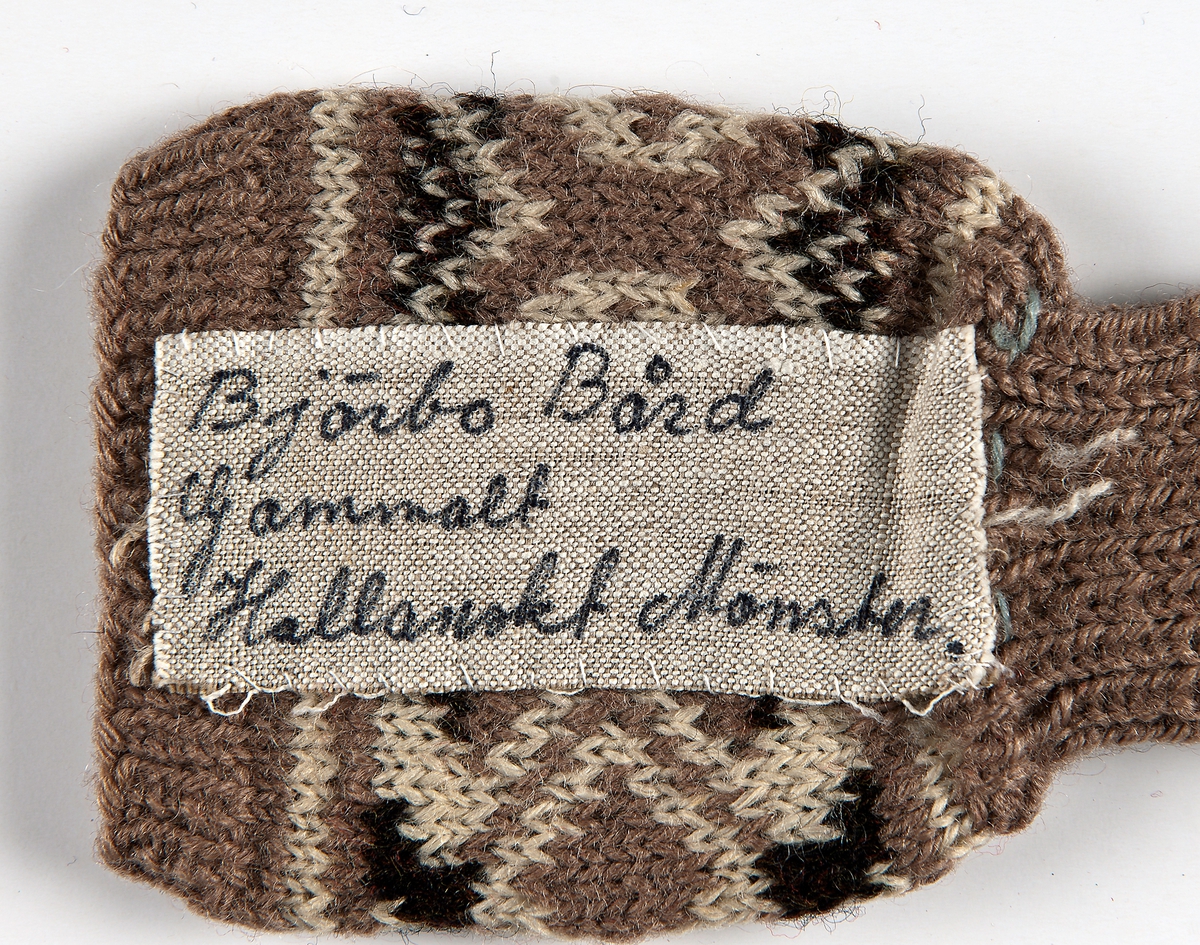 Björbo Bård
Gammalt
Hallanskt Mönster.